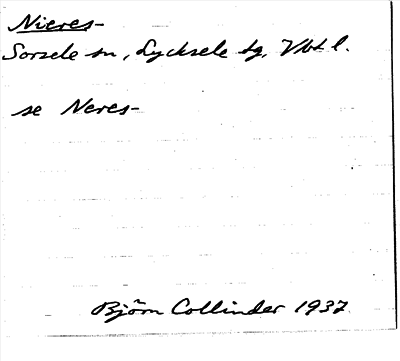 Nieres-
Sorsele sn, Lycksele tg, Vbt l.
se Neres-
Björn Collinder 1937